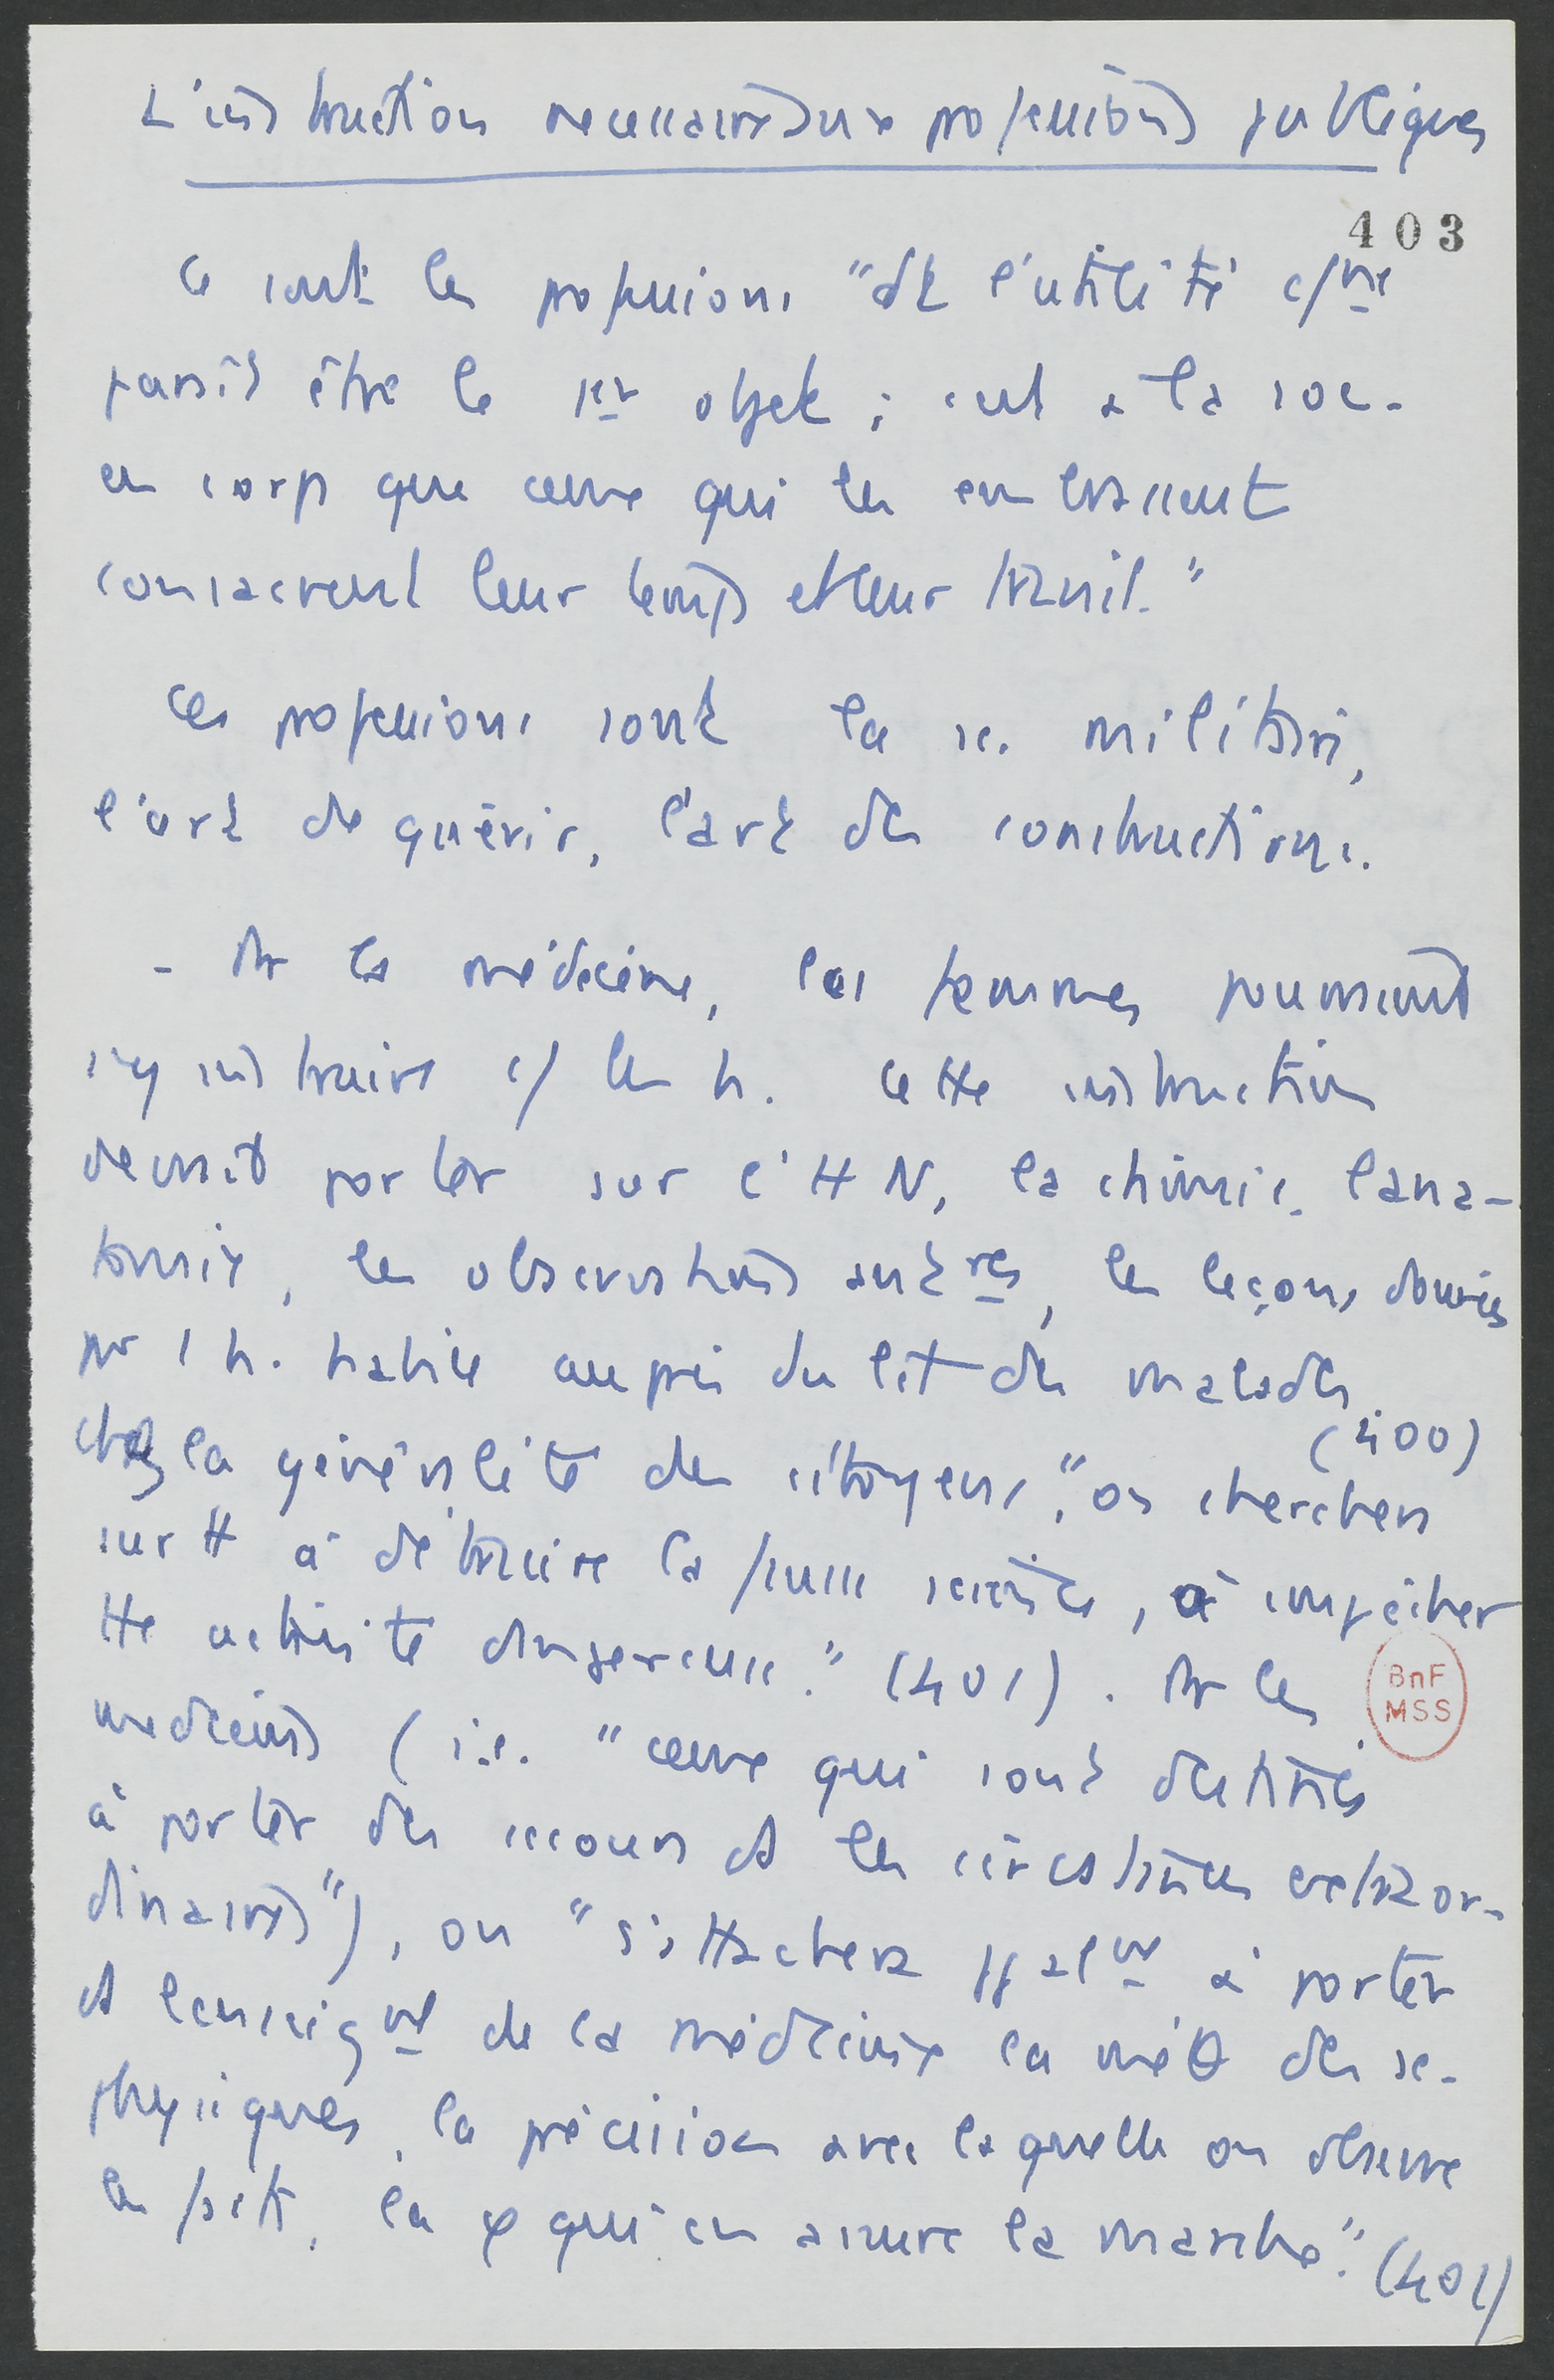 L'instruction necessaire aux professions publiques
403
Ce sont les professions "dt l'utilité c/ne
parait être le 1er objet ; c'est a la soc.
en corps que ceux qui les embrassent
consacrent leur temps et leur travail."
Ces professions sont la sc. militaire,
l'art de guérir, l'art des constructions.
- Dr la médecine, les femmes pourraient
s'y instruire c/ les h. Cette instruction
devrait porter sur l'HN, la chimie, l'ana-
tomie, les observations antres, les leçons données
par 1 h. habile auprès du lit des malades.
(400)
Chez la généralité des citoyens, "on cherchera
surtt à détruire la fausse science, à empêcher
tte activité dangereuse." (401). Dr les
medecins (i.e. "ceux qui sont destinés
à porter des secours ds les circstances extraor-
dinaires"), on "s'attachera ppalmt à porter
ds l'enseigmt de la médecine la méθ des sc.
physiques, la précision avec laquelle on observe
les faits, la φ qui en assure la marche." (401)
BnF
MSS